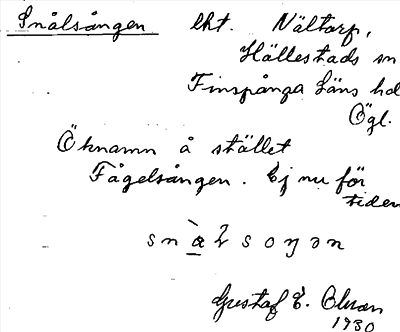 Snålsången lht. Nältorp,
Hällestads sn
Finspånga läns hd
Ögl.
Öknamn å stället
Fågelsången. Ej nu för
tiden
Gustaf E.
1930